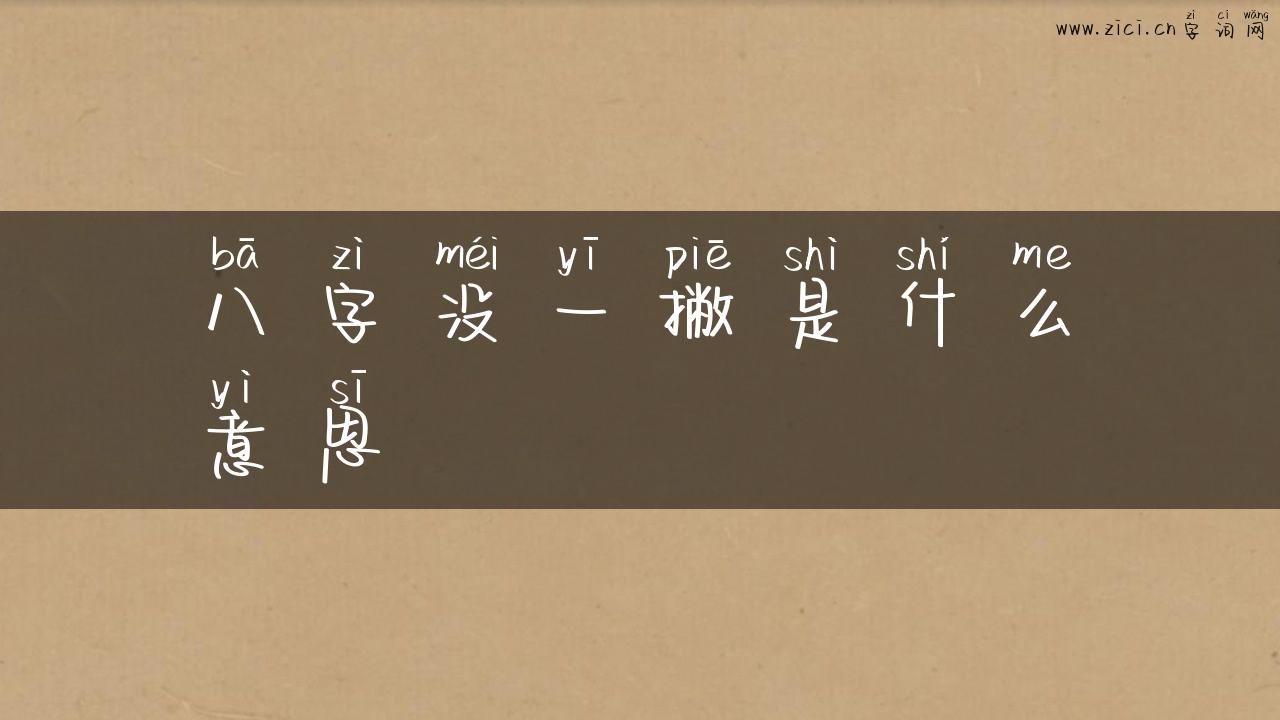 zì cí wǎng
www.zici.cn 字词网
bā zì méi yī piē shì shí me
八字没一撇是什么
yì sī
意思